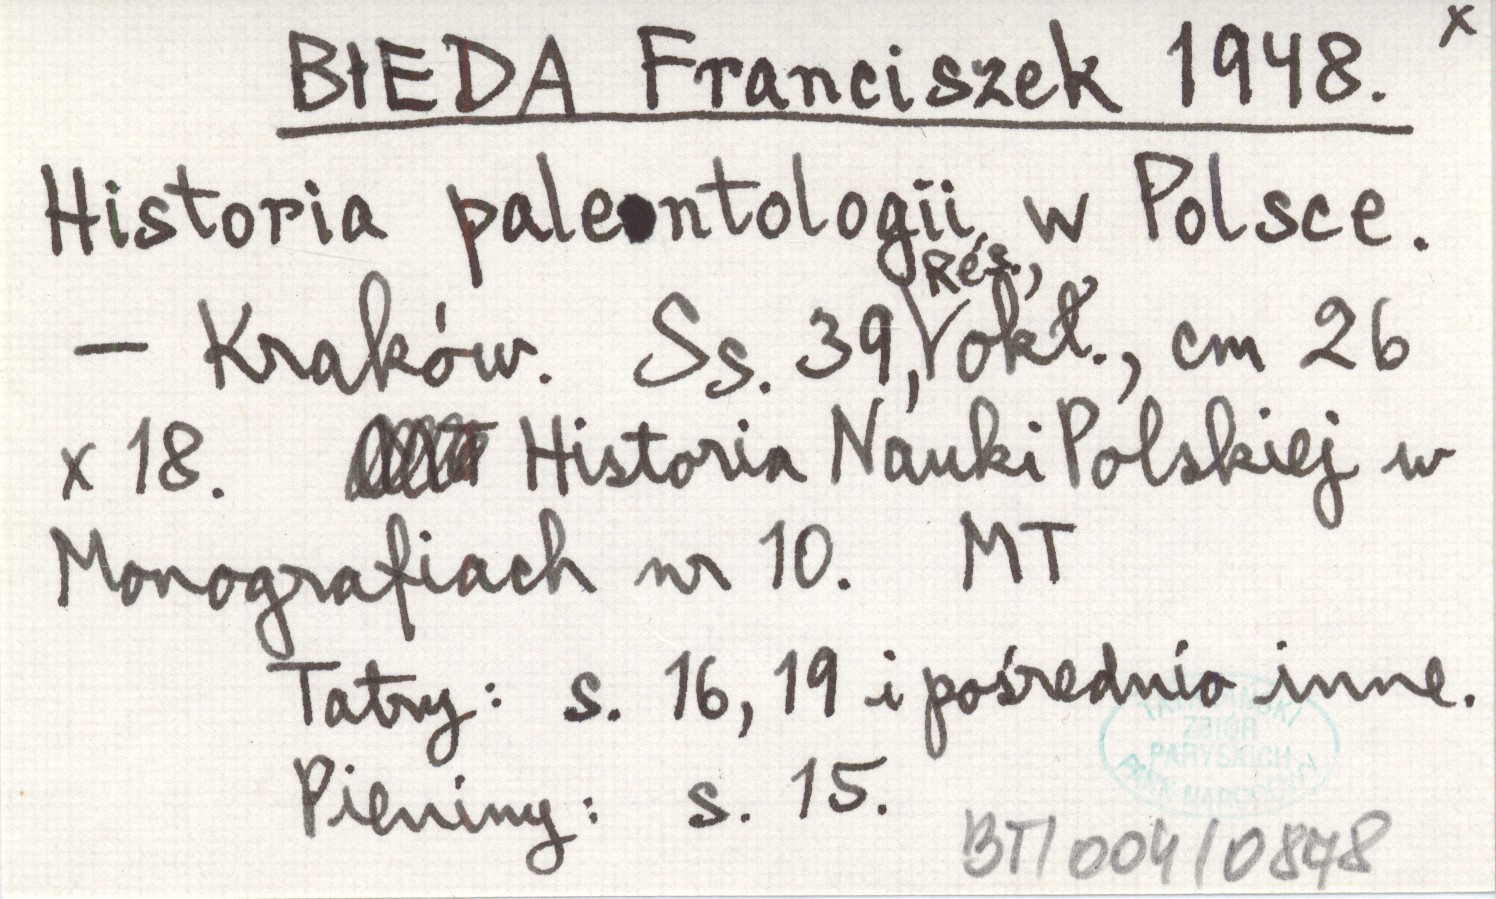 BIEDA Franciszek 1948. x
Historia paleontologii w Polsce.
– Kraków. Ss. 39, Rés., okł., cm 26
x 18. Historia Nauki Polskiej w
Monografiach nr 10. MT
Tatry: s. 16, 19 i pośrednio inne.
Pieniny: s. 15.
TATRZAŃSKI
ZBIÓR
PARYSKICH
PARK NARODOWY
BT/004/0848